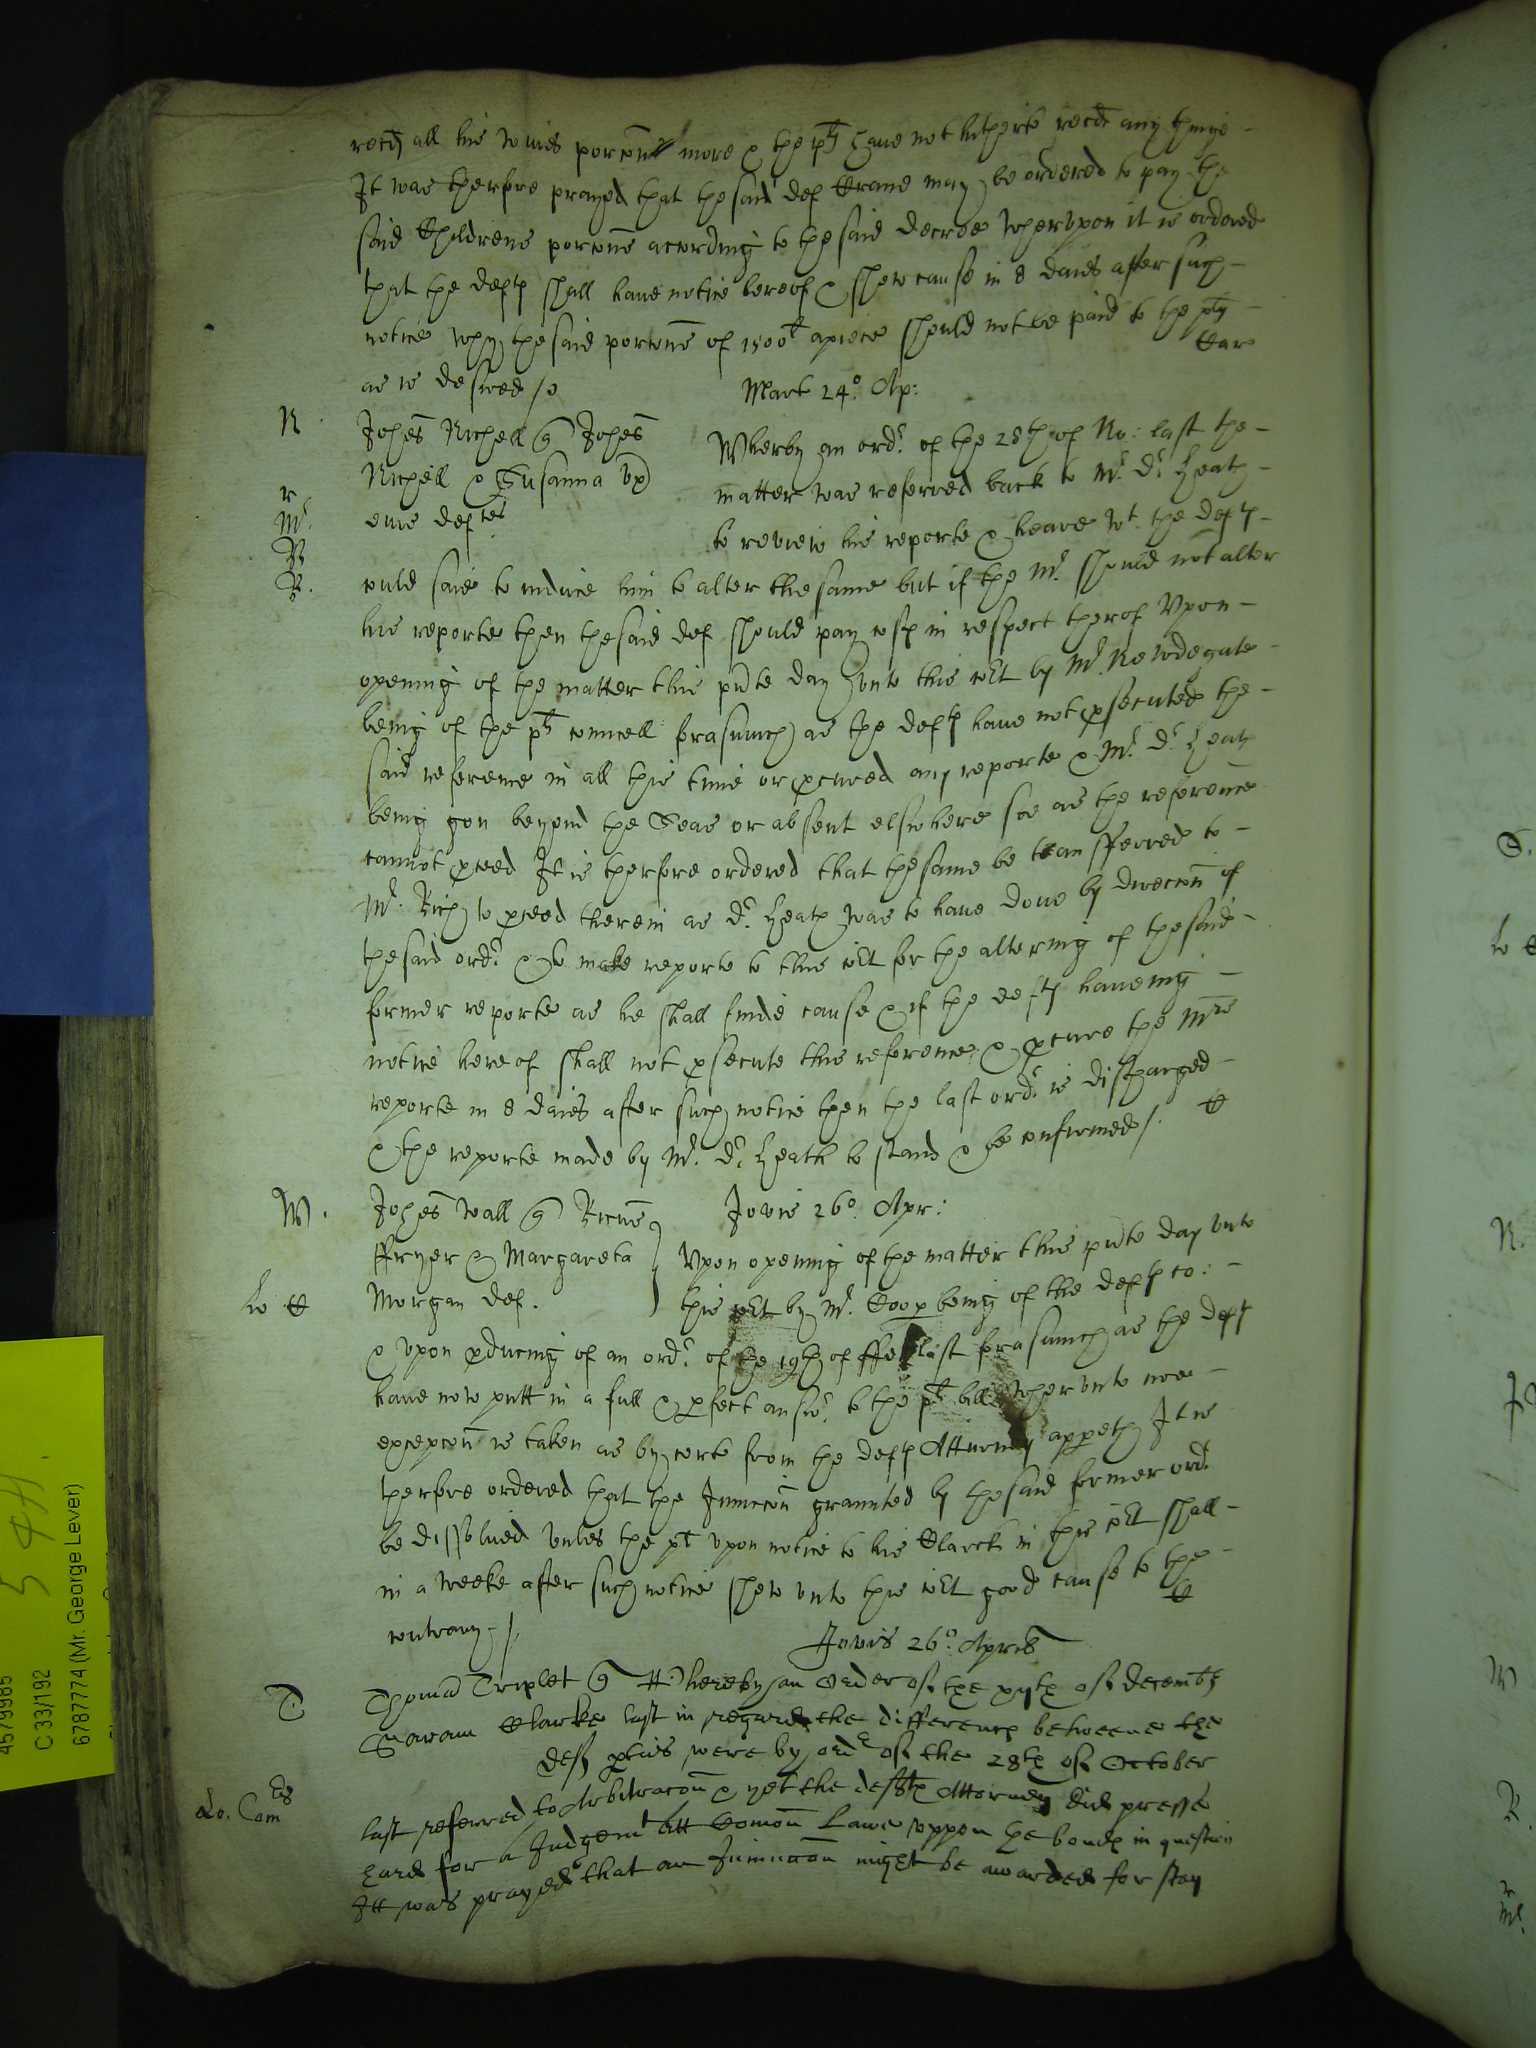 recd all his wives porcon more & the plt have not hitherto recd any thinge
It was therfore prayed that the said def Crane may be ordered to pay the
said Childrens porcons according to the said decree wherupon it is ordered
that the defts shall have notice hereof & shew cause in 8 daies after such
notice why the said porcons of 1500l apiece should not be paid to the plts
as is desired /
Mart 24o. Ap:
R
Johes Richell Johes
Richell & Susanna ux
eius deftes
Wherby an ordr. of the 28th of No: last the
matter was referred back to Mr. Dr. Heath
to review his reporte & heare wt. the defts
r
Mr.
R
R.
could saie to induce him to alter the same but if the Mr. should not alter
his reporte then the said def should pay costs in respect therof Upon
opening of the matter this pnte day unto this Cort by Mr. Newdegate
being of the plts councell forasmuch as the defts have not psecuted the
said reference in all this time or pcured any reporte & Mr. Dr. Heath
being gon beyond the Seas or absent elswhere soe as the reference
cannot pceed It is therfore ordered that the same be transferred to
Mr. Rich to pceed therein as Dr. Heath was to have done by direccon of
the said ordr. & to make reporte to this Cort for the altering of the said
former reporte as he shall finde cause & if the defts haveing
notice hereof shall not psecute this reference & pcure the Mrs
reporte in 8 daies after such notice then the last ordr. is discharged
& the reporte made by Mr. Dr. Heath to stand & be confirmed /.
W.
Johes Wall Ricus
ffryer & Margareta
Morgan def.
Jovis 26o. Apr:
Upon opening of the matter this pnte day unto
this Cort by Mr. Coop being of the defts co:
& upon pducing of an ordr. of the 19th of ffe last forasmuch as the defts
have now putt in a full & pfect answr. to the plts bill wherunto noe
excepcon is taken as by certe from the defts Atturney appeth It is
therfore ordered that the Iniuccon graunted by the said former ordr.
be dissolved unles the plt upon notice to his Clarck in this Cort shall
in a weeke after such notice shew unto this Cort good cause to the
contrary /
Jovis 26o. Aprilis
T
Thomas Triplet Whereby an Order of the xijth of Decemb
Clarke last in regard the differences betweene the
def pties were by ordr of the 28th of October
Lo. Com
last referred to Arbitracon & yet the defts Attorney did presse
hard for a Judgemt att Comon Lawe uppon the bonds in question
Itt was prayed that an Iniunccon might be awarded for stay
4579985
C 33/192
6787774 (Mr. George Lever)